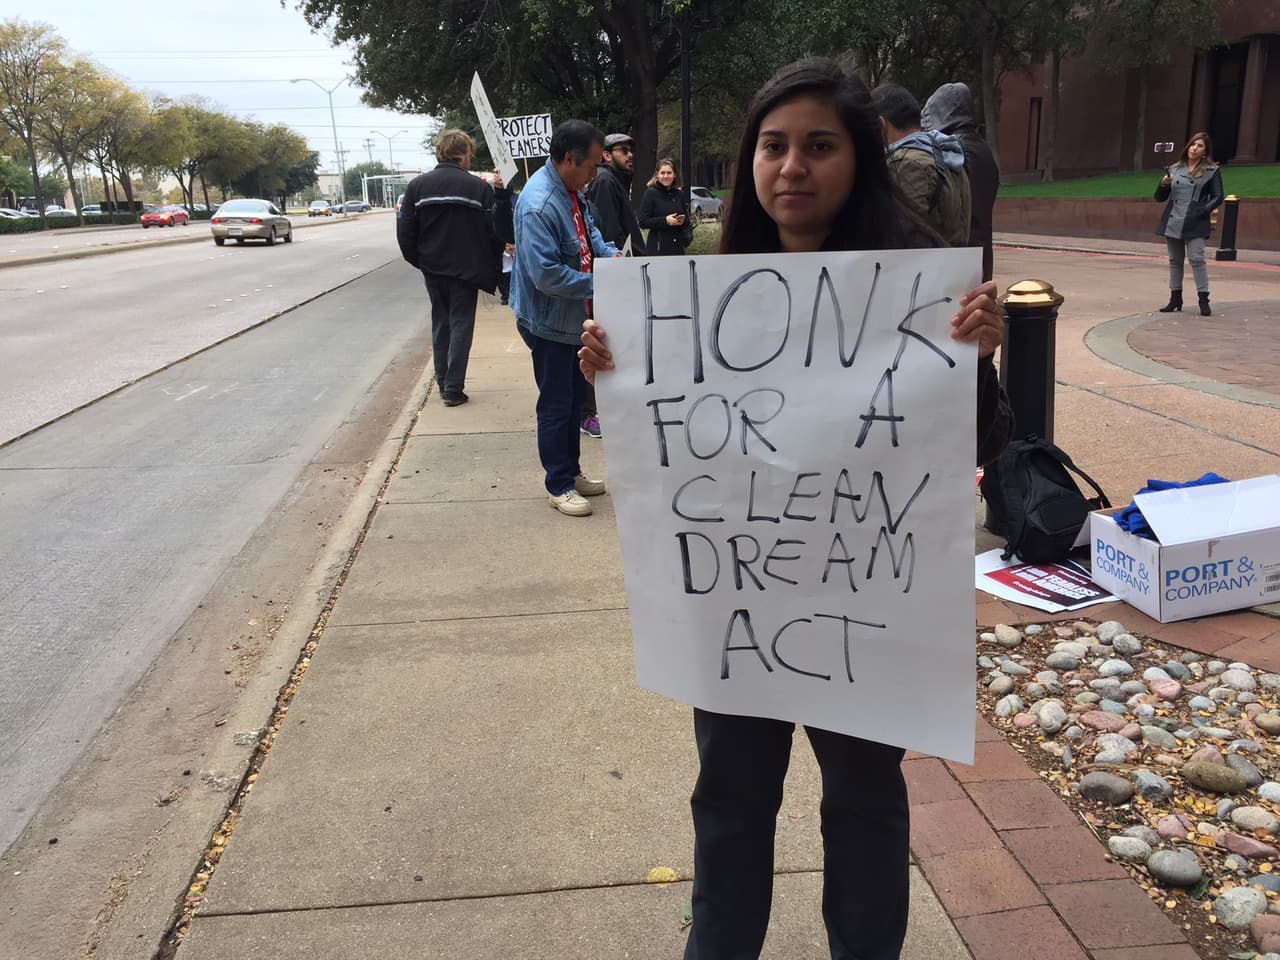 PROTECT
HONK
FOR A
CLEAN
DREAM
ACT
PORT &
COMPANY
PORT &
COMPANY